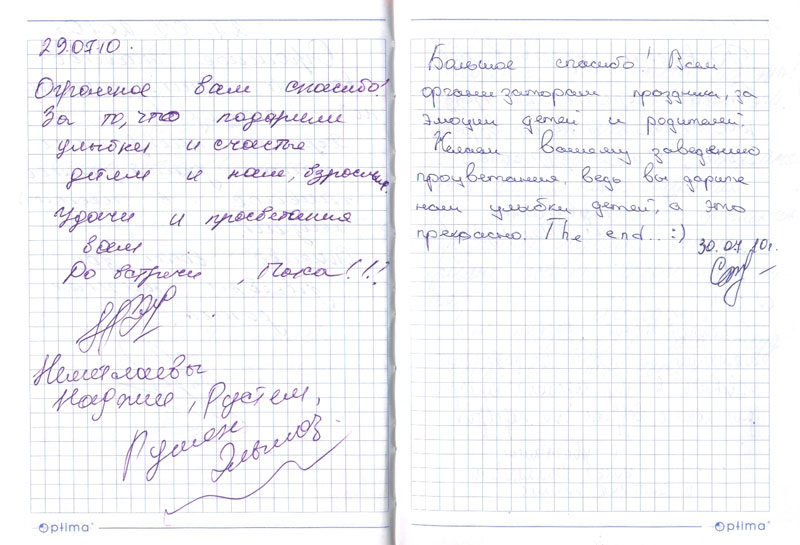 29.07.10.
Огромное вам спасибо!
За то, что подарили
улыбки и счастье
детям и нам, взрослым.
Удачи и просветания
всем
До встречи, Пока!!!
Неметлаевы
Наджие, Рустем,
Эльмаз
optima
Большое спасибо! Всем
организаторам праздника, за
эмоции детей и родителей.
Желаем вашему заведению
процветания, ведь вы дарите
нам улыбки детей, а это
прекрасно. The end... :)
30.07.10г.
optima